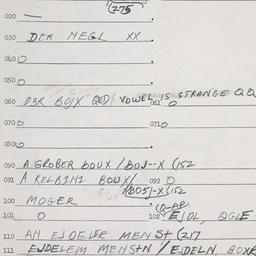 (275
020 —
030 DER NEGL XX
040 0
050 0
060 DER BOJX QED VOWEL IS STRANGE QQ
061 0
070 0 071 0
080 0
090 A GROBER BOUX / BOJ--X (152
091 A KELBINI BOUX / 092 0
/BO5J-X (152
100 MOGER
101 0 102 EJDL, QGLE
110 AN EJDELER MENST (217
111 EJDELEM MENSTN / EJDELN, BOXE